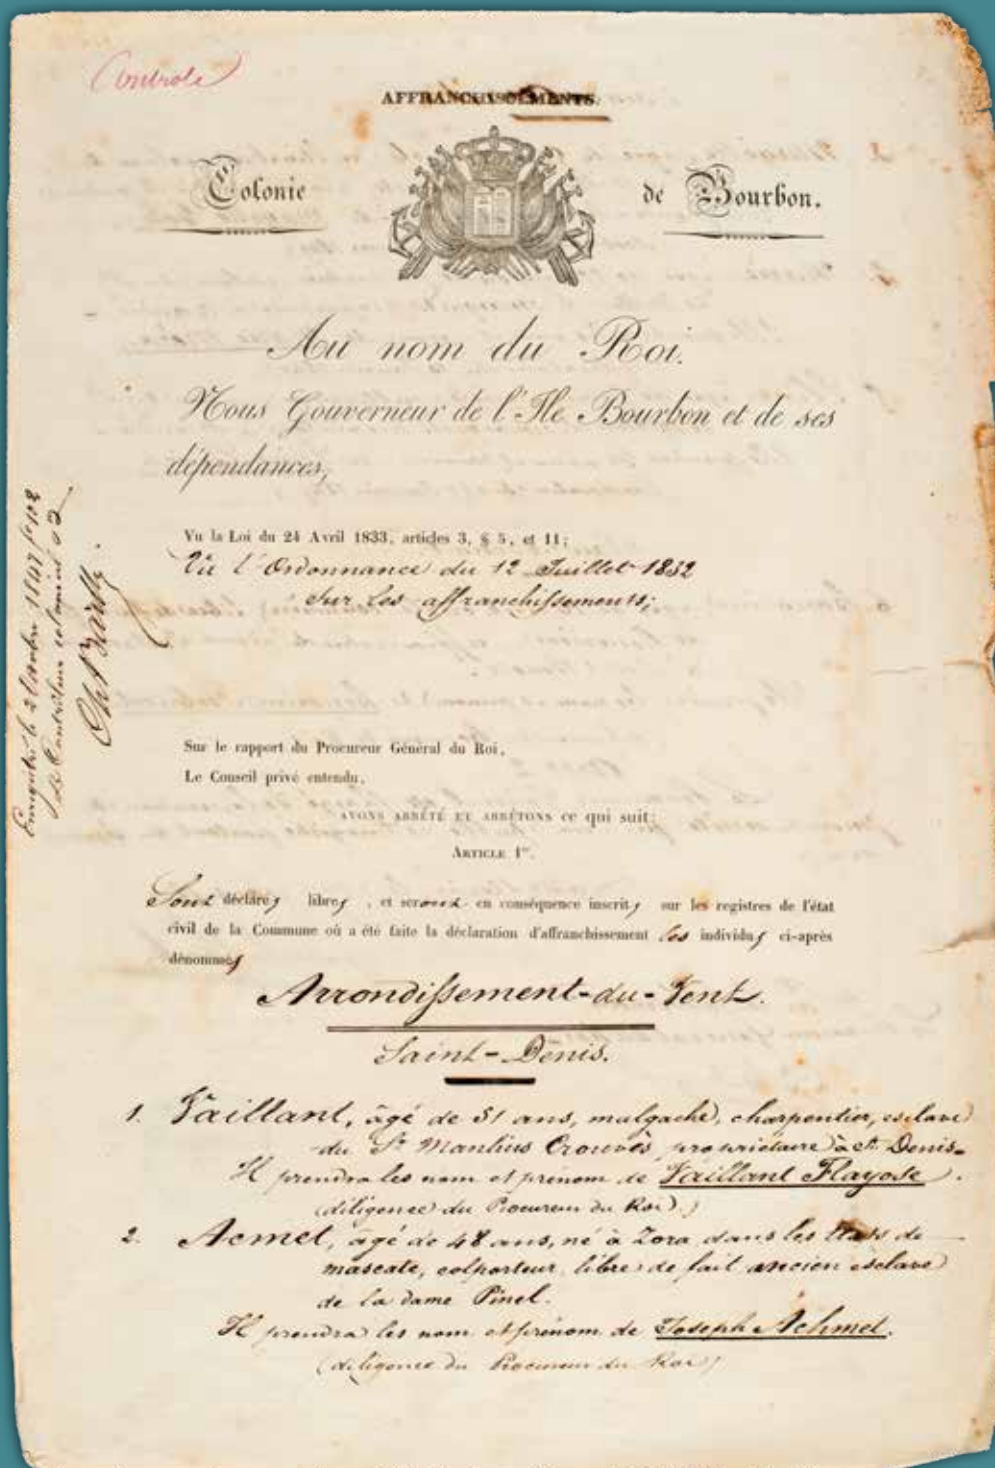 Controle
AFFRANCHISSEMENTS.
Colonie de Bourbon.
Au nom du Roi.
Nous Gouverneur de l'Ile Bourbon et de ses
dépendances,
Vu la Loi du 24 Avril 1833, articles 3, § 5, et 11;
Vu l'Ordonnance du 12 Juillet 1832
sur les affranchissements;
Enregistré le 2 Octobre 1847 fo 102
Le Contrôleur colonial
Sur le rapport du Procureur Général du Roi,
Le Conseil privé entendu,
AVONS ARRÊTÉ ET ARRÊTONS ce qui suit:
ARTICLE 1er.
Sont déclarés libres, et seront en conséquence inscrits sur les registres de l'état
civil de la Commune où a été faite la déclaration d'affranchissement les individus ci-après
dénommés
Arrondissement-du-Vent.
Saint-Denis.
1. Vaillant, âgé de 51 ans, malgache, charpentier, esclave
du Sr Manlius Crouvès propriétaire à St Denis.
Il prendra les nom et prénom de Vaillant Flayose.
(diligence du Procureur du Roi)
2. Acmet, âgé de 48 ans, né à Zora dans les États de
mascate, colporteur, libre de fait ancien esclave
de la dame Pinel.
Il prendra les nom et prénom de Joseph Achmet.
(diligence du Procureur du Roi)